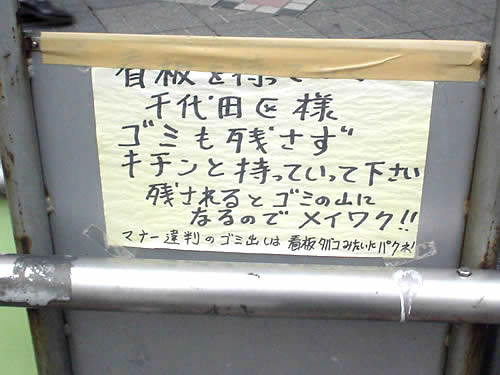 看板を持って
千代田区様
ゴミも残さず
キチンと持っていって下さい
残されるとゴミの山に
なるのでメイワク!!
マナー違判のゴミ出しは看板タバコみたいにパクネ!